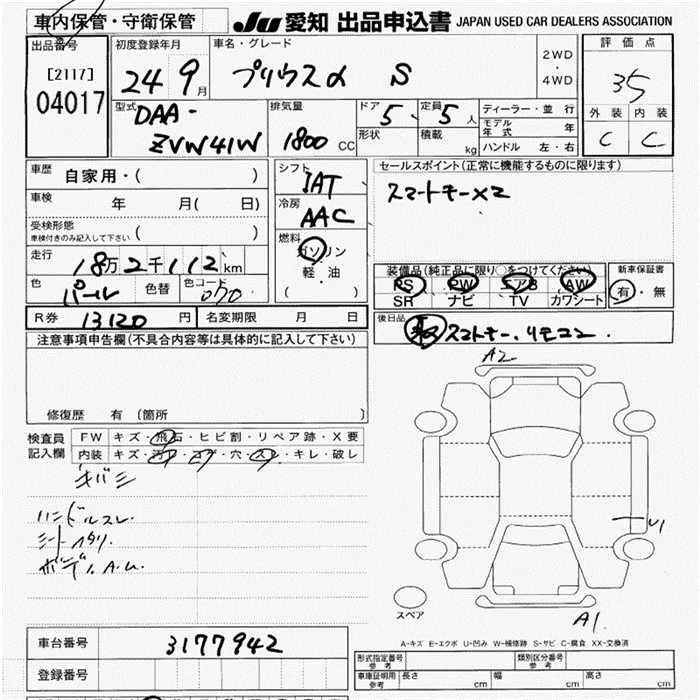 車内保管・守衛保管
JU 愛知 出品申込書 JAPAN USED CAR DEALERS ASSOCIATION
出品番号
[2117]
04017
初度登録年月
24 9月
車名・グレード
プリウスα S
2WD
・
4WD
評価点
35
外装 内装
C C
型式
DAA-
ZVW41W
排気量
1800 CC
ドア 5
定員 5人
形状
積載 kg
ディーラー・並行
モデル年式 年
ハンドル 左・右
車歴 自家用・( )
車検 年 月( 日)
受検形態
車検付きのみ記入して下さい ( )
走行 18万2千112km
色 パール 色替 色コード 070
R券 13120 円 名変期限 月 日
シフト
IAT
冷房
AAC
燃料
ガソリン
軽・油
( )
セールスポイント(正常に機能するものに限ります)
スマートキー×2
装備品(純正品に限り○をつけてください)
PS PW エアB AW
SR ナビ TV カワシート
新車保証書
有・無
後日品
スマートキー、リモコン
注意事項申告欄(不具合内容等は具体的に記入して下さい)
修復歴 有 (箇所 )
検査員
記入欄
FW キズ・飛石・ヒビ割・リペア跡・X要
内装 キズ・汚れ・コゲ・穴・スレ・キレ・破レ
キバミ
ハンドルスレ
シートヘタリ
ボディ A.U.
A2
U1
A1
スペア
A-キズ E-エクボ U-凹み W-補修跡 S-サビ C-腐食 XX-交換済
車台番号 3177942
登録番号
形式指定番号 参考 類別区分番号 参考
車庫証明用 参考 長さ cm 幅 cm 高さ cm